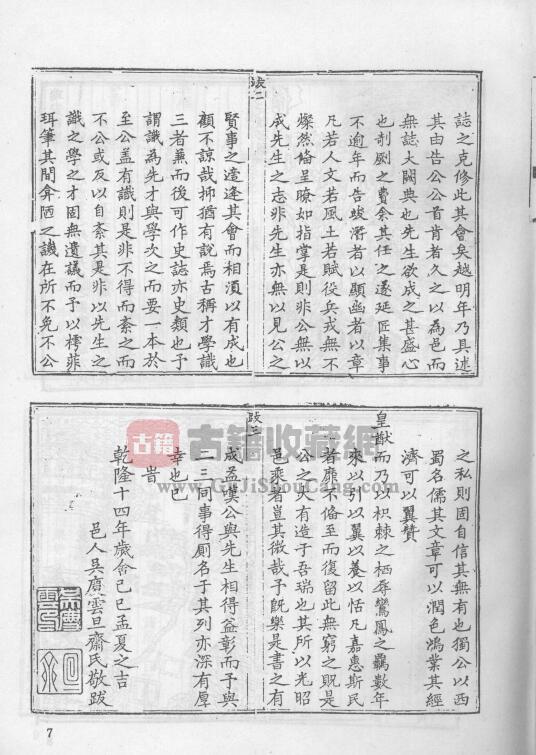 跋二
誌之克修此其會矣越明年乃具述
其由告公公首肯者久之以為邑而
無誌大闕典也先生欲成之甚盛心
也剞劂之費余其任之遂延匠集事
不逾年而告竣潛者以顯幽者以章
凡若人文若風土若賦役兵戎無不
燦然偹呈瞭如指掌是則非公無以
成先生之志非先生亦無以見公之
賢事之遠逢其會而相須以有成也
顧不諒哉抑猶有說焉古稱才學識
三者兼而後可作史誌亦史類也予
謂識為先才與學次之而要一本於
至公盖有識則是非不得而紊之而
不公或反以自紊其是非以先生之
識之學之才固無遺議而予以樗菲
珥筆其間弇陋之譏在所不免不公
跋三
之私則固自信其無有也獨公以西
蜀名儒其文章可以潤色鴻業其經
濟可以翼贊
皇猷而乃以枳棘之栖辱鸞鳳之羈數年
來以引以翼以養以恬凡嘉惠斯民
者靡不偹至而復留此無窮之貺是
公之大有造于吾瑞也其所以光昭
邑乘者豈其微哉予旣樂是書之有
成孟嘆公與先生相得益彰而予與
二三同事得厠名于其列亦深有厚
幸也已
旹
乾隆十四年歲侖己巳孟夏之吉
邑人吳
雲旦齋氏敬跋
古籍
古籍收藏網
www.GuJiShouCang.com
7